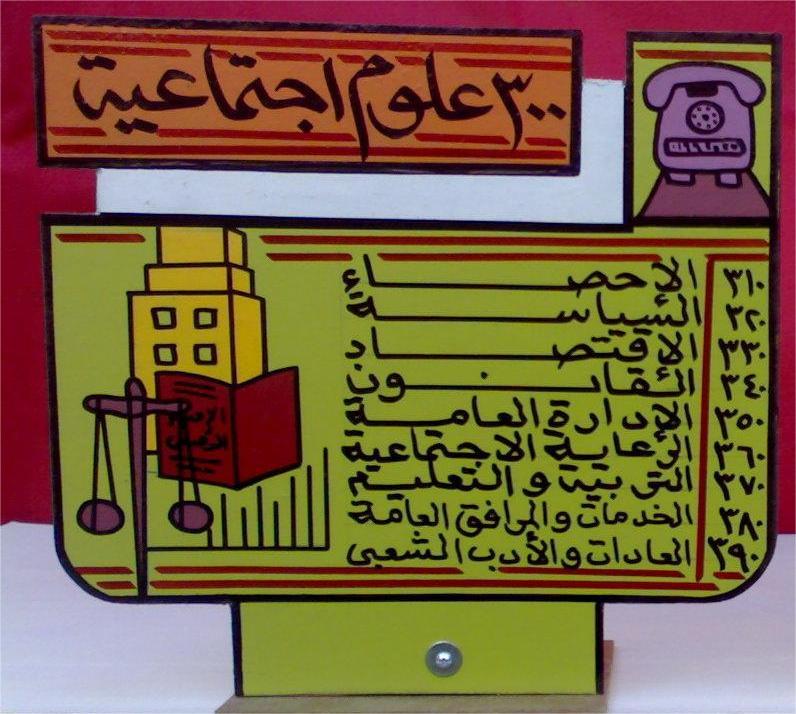 ٣٠٠ علوم اجتماعية
٣١٠ الاحصاء
٣٢٠ السياسة
٣٣٠ الاقتصاد
٣٤٠ القانون
٣٥٠ الإدارة العامة
٣٦٠ الرعاية الاجتماعية
٣٧٠ التربية والتعليم
٣٨٠ الخدمات والمرافق العامة
٣٩٠ العادات والأدب الشعبي